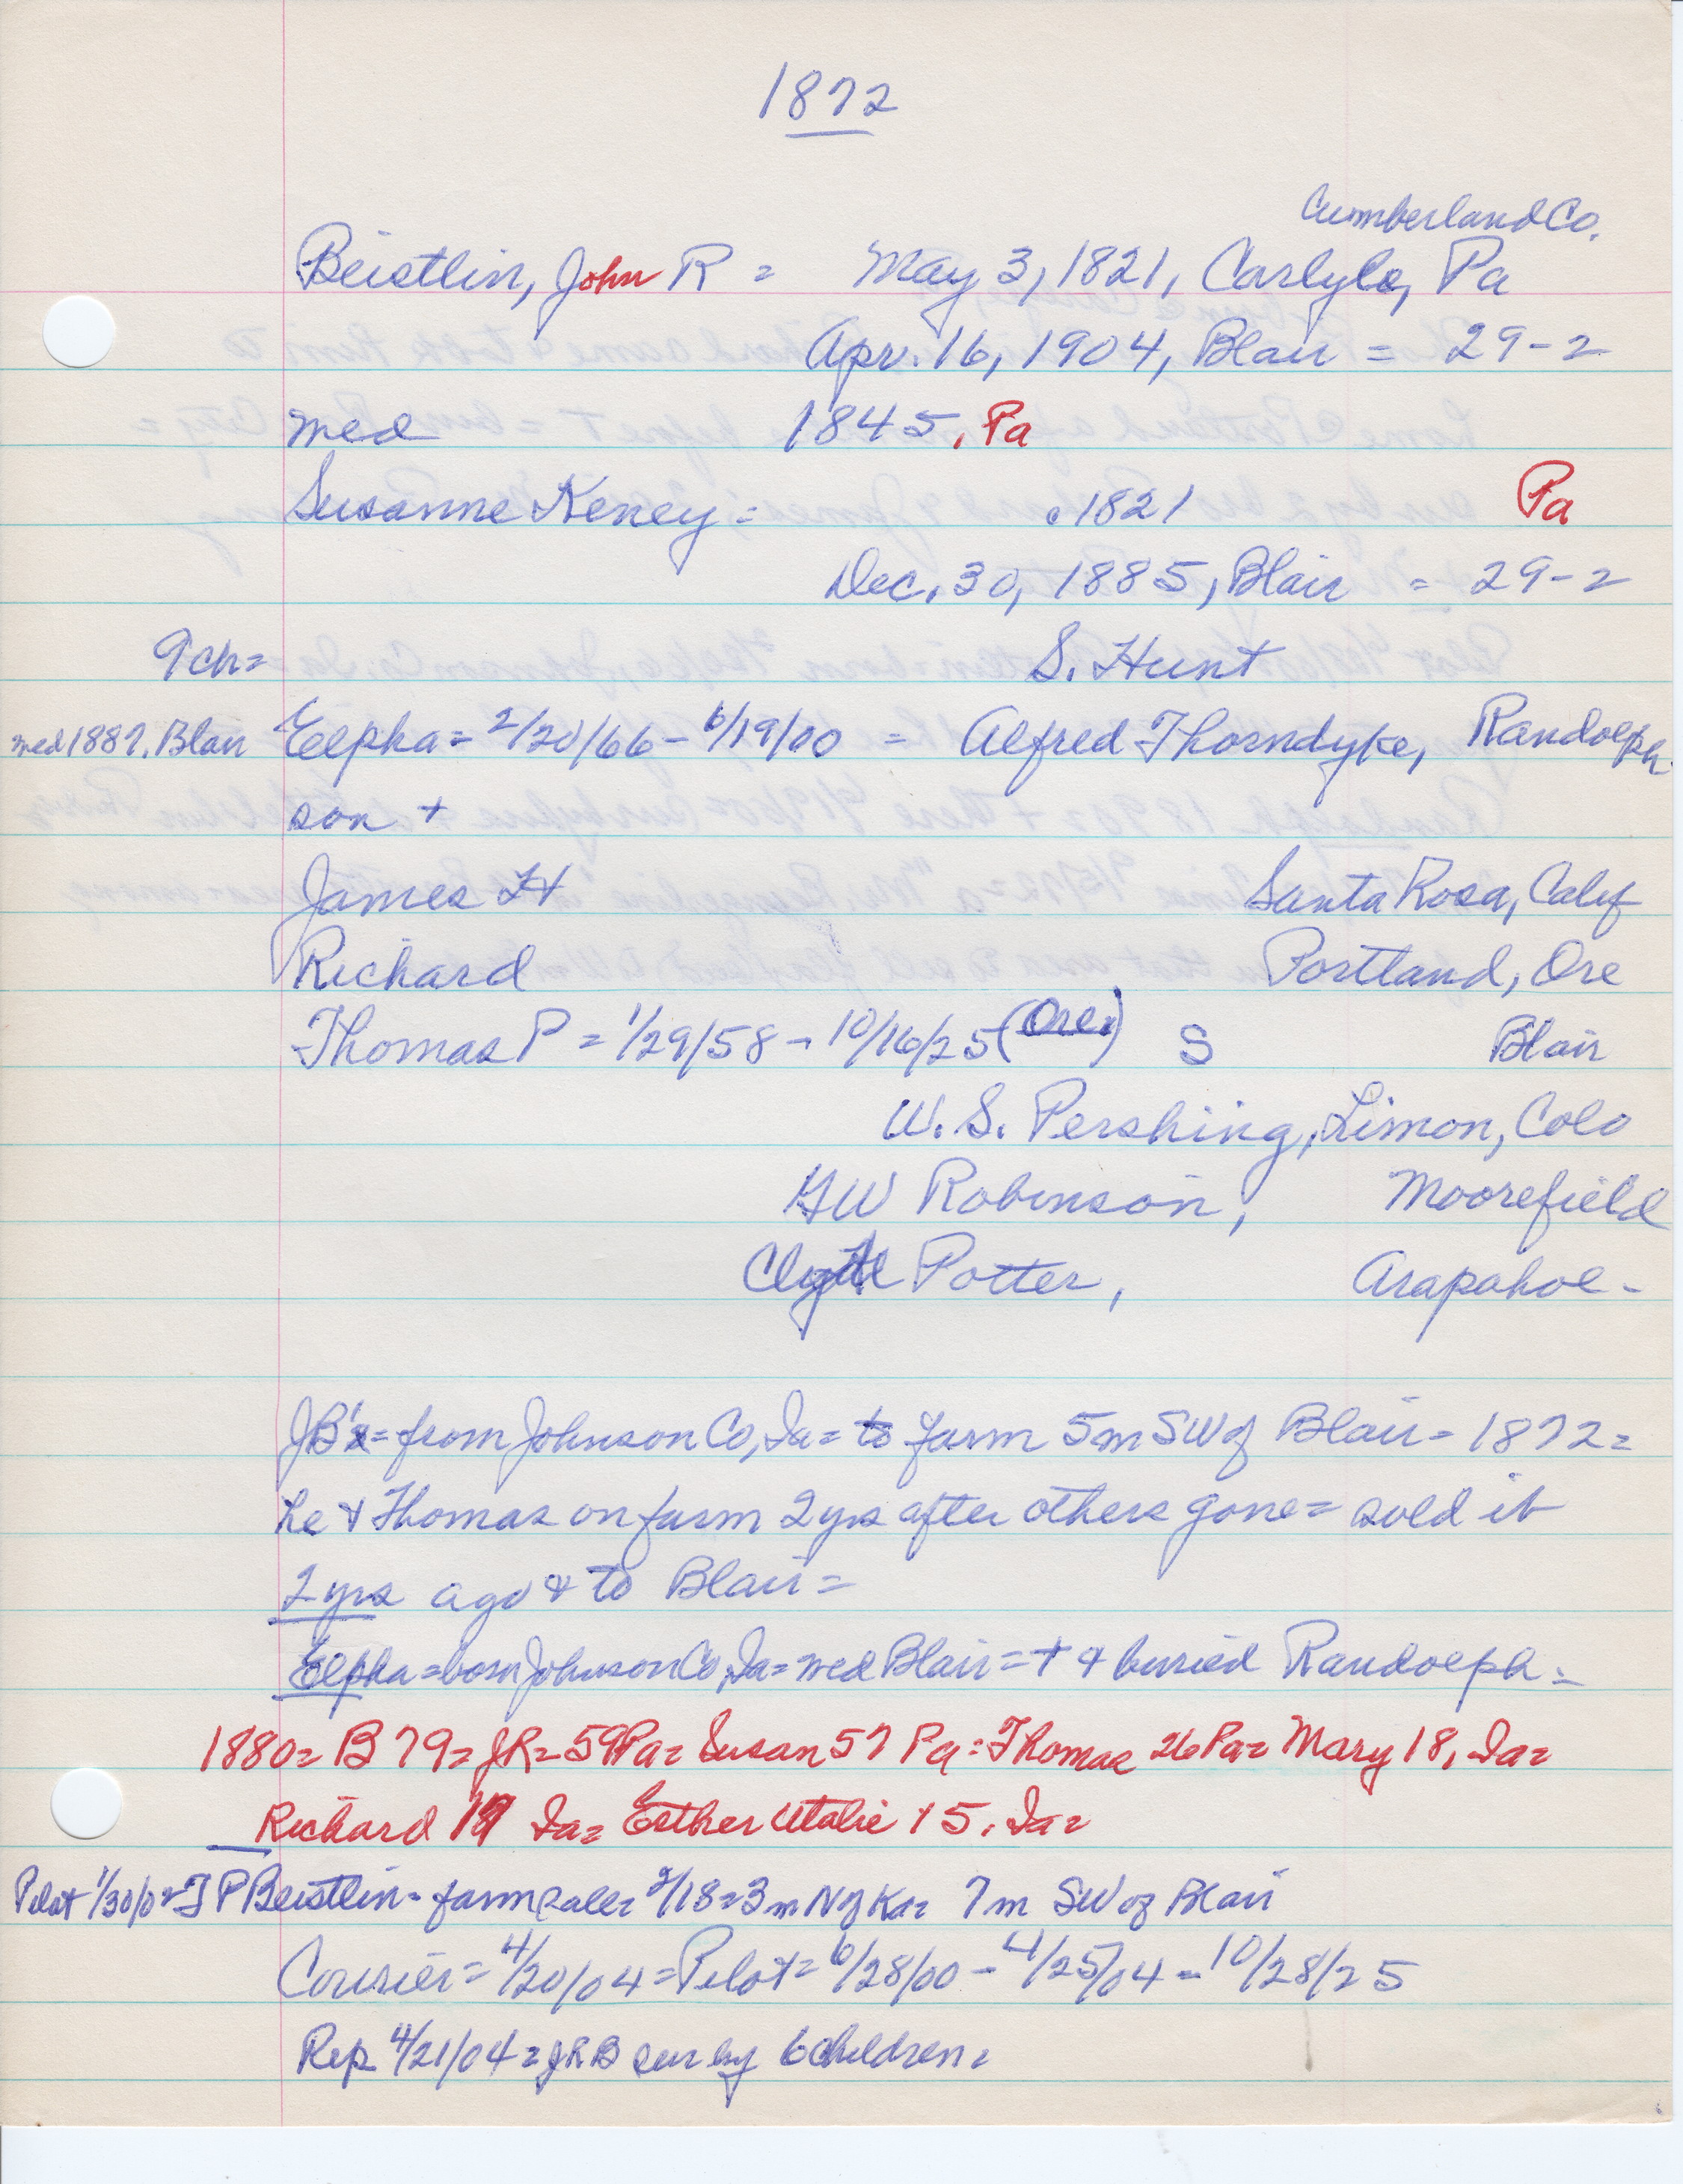 1872
Cumberland Co.
Beistlin, John R = May 3, 1821, Carlyle, Pa
Apr. 16, 1904, Blair = 29-2
med 1845, Pa
Susanne Keney = .1821 Pa
Dec. 30, 1885, Blair = 29-2
9 ch= S. Hunt
med 1887. Blair Eelpha = 2/20/66 - 6/19/00 = Alfred Thorndyke, Randolph
son +
James H Santa Rosa, Calif
Richard Portland, Ore
Thomas P = 1/29/58 - 10/16/25 (Ore.) S Blair
W. S. Pershing, Limon, Colo
GW Robinson, Moorefield
Potter, Arapahoe -
JB's = from Johnson Co, Ia = to farm 5m SW of Blair = 1872 =
he & Thomas on farm 2 yrs after others gone = sold it
2 yrs ago & to Blair =
Eelpha = born Johnson Co, Ia = med Blair = + & buried Randolph =
1880 = B 79 = JR = 59 Pa = Susan 57 Pa = Thomas 26 Pa = Mary 18, Ia =
Richard Ia = Esther 15, Ia =
Pilot 1/30/0 = T P Beistlin - farm sale = 2/18 = 3 m N of Ka = 7 m SW of Blair
Courier = 4/20/04 = Pilot = 6/28/00 - 4/25/04 - 10/28/25
Rep 4/21/04 = JRB sur by 6 children =